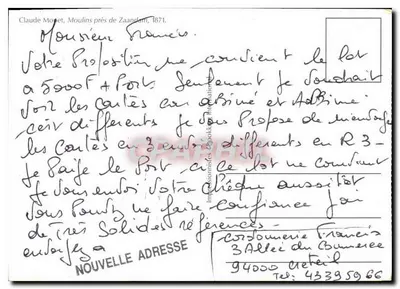 Claude Monet, Moulins près de Zaandam, 1871.
Monsieur Francis.
Votre Proposition me convient le lot
a 5000F + Port. Seulement je voudrait
voir les Cartes con abimé et Abimé
cest differents je vous Propose de m'envoyer
les Cartes en 3 envois differents en R 3 -
je Paije le Port si ce lot me convient
je vous envoi votre chèque aussitot
vous Pouvez me faire confiance j'ai
de Très Solides références -
envoyez a
NOUVELLE ADRESSE
Cordonnerie Francis
3 Allée du Commerce
94000 Creteil
Tel: 43395966